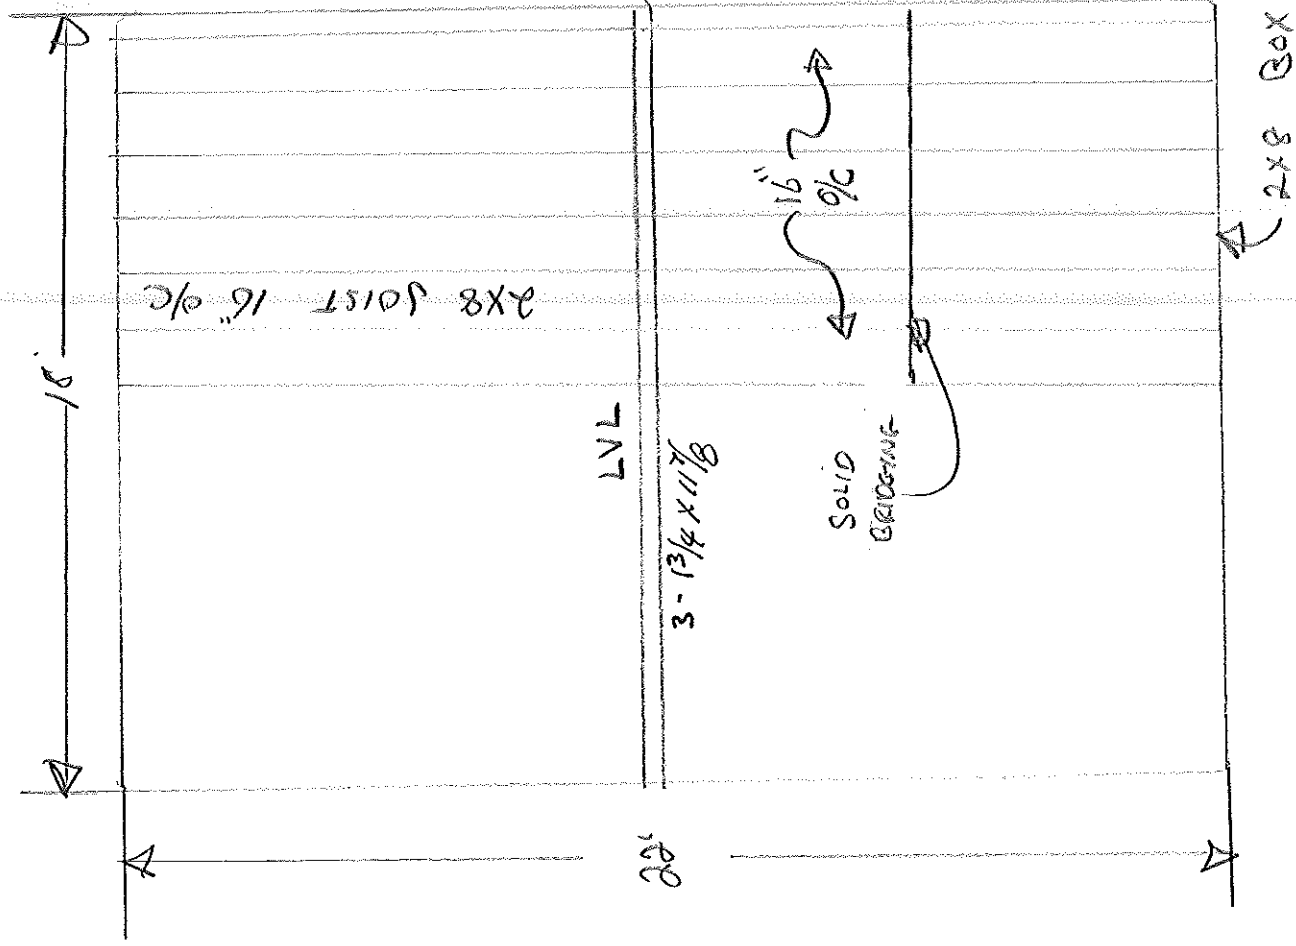 18'
2x8 JOIST 16" O/C
LVL
3 - 1 3/4 x 11 7/8
16"
O/C
SOLID
BRIDGING
22'
2x8 BOX